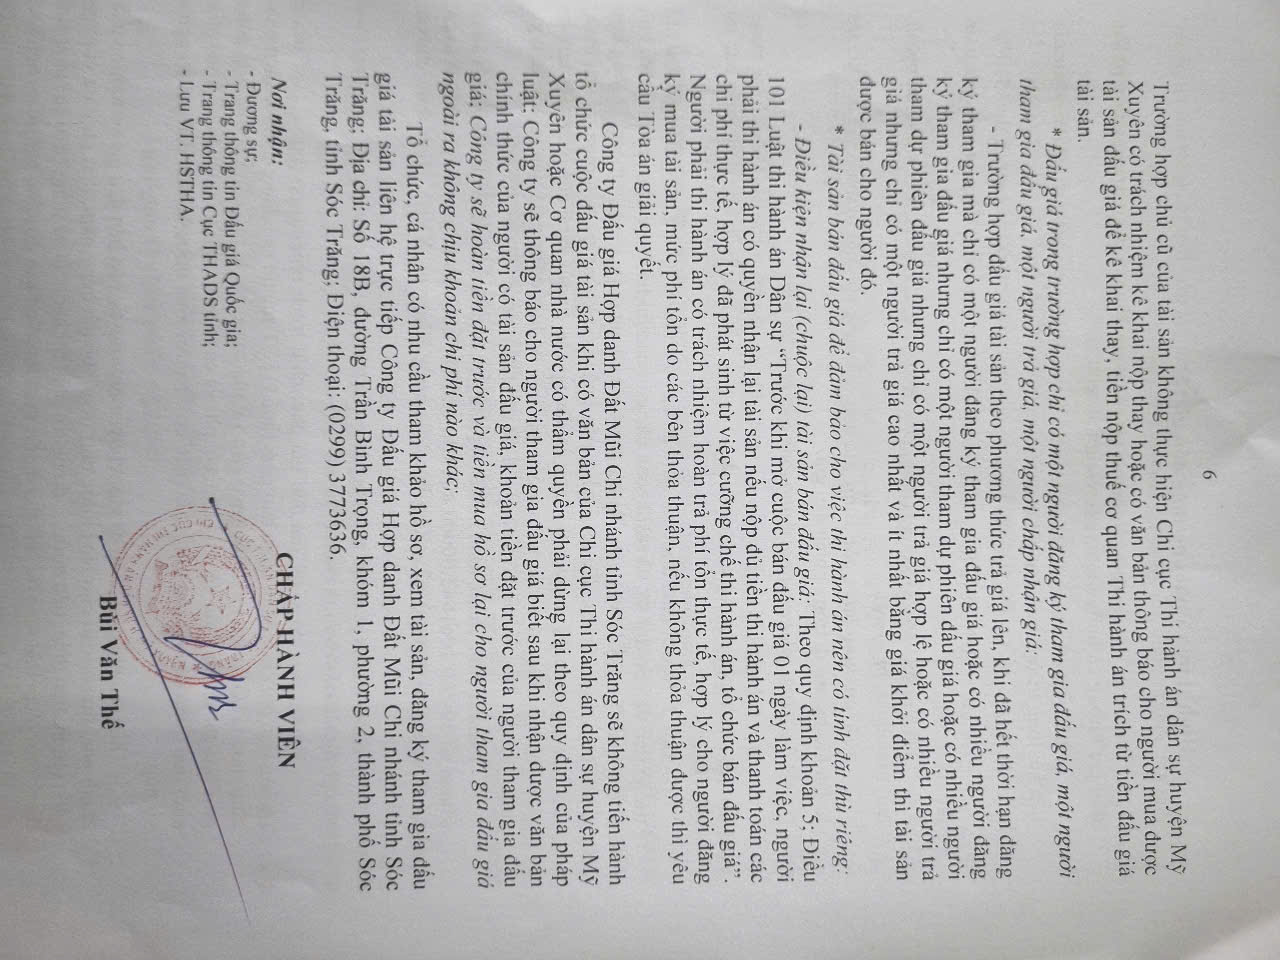 6
Trường hợp chủ cũ của tài sản không thực hiện Chi cục Thi hành án dân sự huyện Mỹ
Xuyên có trách nhiệm kê khai nộp thay hoặc có văn bản thông báo cho người mua được
tài sản đấu giá để kê khai thay, tiền nộp thuế cơ quan Thi hành án trích từ tiền đấu giá
tài sản.
* Đấu giá trong trường hợp chỉ có một người đăng ký tham gia đấu giá, một người
tham gia đấu giá, một người trả giá, một người chấp nhận giá:
- Trường hợp đấu giá tài sản theo phương thức trả giá lên, khi đã hết thời hạn đăng
ký tham gia mà chỉ có một người đăng ký tham gia đấu giá hoặc có nhiều người đăng
ký tham gia đấu giá nhưng chỉ có một người tham dự phiên đấu giá hoặc có nhiều người
tham dự phiên đấu giá nhưng chỉ có một người trả giá hợp lệ hoặc có nhiều người trả
giá nhưng chỉ có một người trả giá cao nhất và ít nhất bằng giá khởi điểm thì tài sản
được bán cho người đó.
* Tài sản bán đấu giá để đảm bảo cho việc thi hành án nên có tính đặt thì riêng:
- Điều kiện nhận lại (chuộc lại) tài sản bán đấu giá: Theo quy định khoản 5; Điều
101 Luật thi hành án Dân sự “Trước khi mở cuộc bán đấu giá 01 ngày làm việc, người
phải thi hành án có quyền nhận lại tài sản nếu nộp đủ tiền thi hành án và thanh toán các
chi phí thực tế, hợp lý đã phát sinh từ việc cưỡng chế thi hành án, tổ chức bán đấu giá”.
Người phải thi hành án có trách nhiệm hoàn trả phí tổn thực tế, hợp lý cho người đăng
ký mua tài sản, mức phí tổn do các bên thỏa thuận, nếu không thỏa thuận được thì yêu
cầu Tòa án giải quyết.
Công ty Đấu giá Hợp danh Đất Mũi Chi nhánh tỉnh Sóc Trăng sẽ không tiến hành
tổ chức cuộc đấu giá tài sản khi có văn bản của Chi cục Thi hành án dân sự huyện Mỹ
Xuyên hoặc Cơ quan nhà nước có thẩm quyền phải dừng lại theo quy định của pháp
luật; Công ty sẽ thông báo cho người tham gia đấu giá biết sau khi nhận được văn bản
chính thức của người có tài sản đấu giá, khoản tiền đặt trước của người tham gia đấu
giá; Công ty sẽ hoàn tiền đặt trước và tiền mua hồ sơ lại cho người tham gia đấu giá
ngoài ra không chịu khoản chi phí nào khác;
Tổ chức, cá nhân có nhu cầu tham khảo hồ sơ, xem tài sản, đăng ký tham gia đấu
giá tài sản liên hệ trực tiếp Công ty Đấu giá Hợp danh Đất Mũi Chi nhánh tỉnh Sóc
Trăng; Địa chỉ: Số 18B, đường Trần Bình Trọng, khóm 1, phường 2, thành phố Sóc
Trăng, tỉnh Sóc Trăng; Điện thoại: (0299) 3773636.
Nơi nhận:
- Đương sự;
- Trang thông tin Đấu giá Quốc gia;
- Trang thông tin Cục THADS tỉnh;
- Lưu VT. HSTHA.
CHẤP HÀNH VIÊN
Bùi Văn Thế